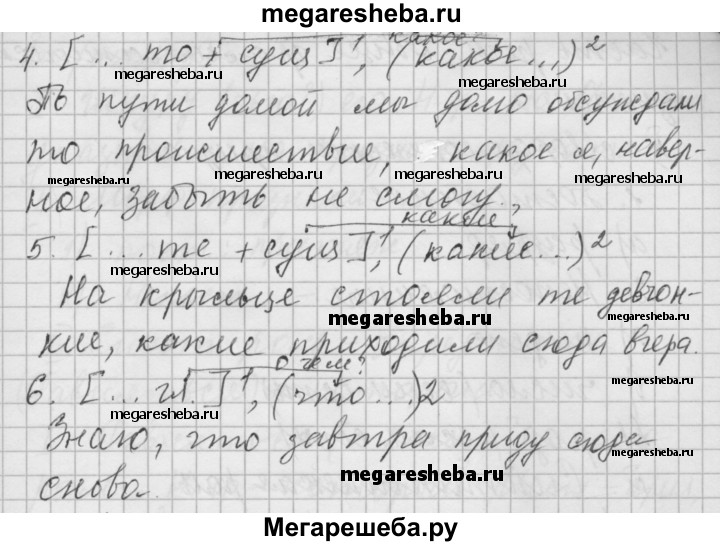 megaresheba.ru
какое
4. [... то + сущ]¹, (какое...)²
megaresheba.ru megaresheba.ru
По пути домой мы долго обсуждали
то происшествие, какое я, навер-
megaresheba.ru megaresheba.ru megaresheba.ru
ное, забыть не смогу.
какие
5. [... те + сущ]¹, (какие...)²
megaresheba.ru megaresheba.ru
На крыльце стояли те девчон-
megaresheba.ru
кие, какие приходили сюда вчера.
о чём?
6. [... гл.]¹, (что...)2
megaresheba.ru megaresheba.ru
Знаю, что завтра приду сюда
megaresheba.ru
снова.
megaresheba.ru
Мегарешеба.ру